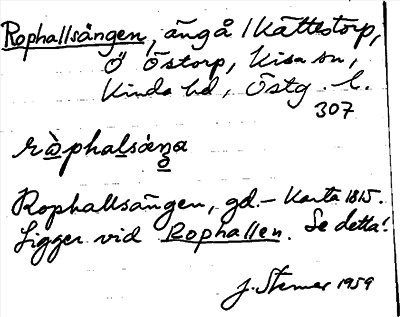 Rophallsängen, äng å / Kättestorp,
Ö Östorp, Kisa sn,
Kinda hd, Östg. l.
307
ràphalsæŋa
Rophallsängen, gd. – Karta 1815.
Ligger vid Rophallen. Se detta!
J. Sterner 1959